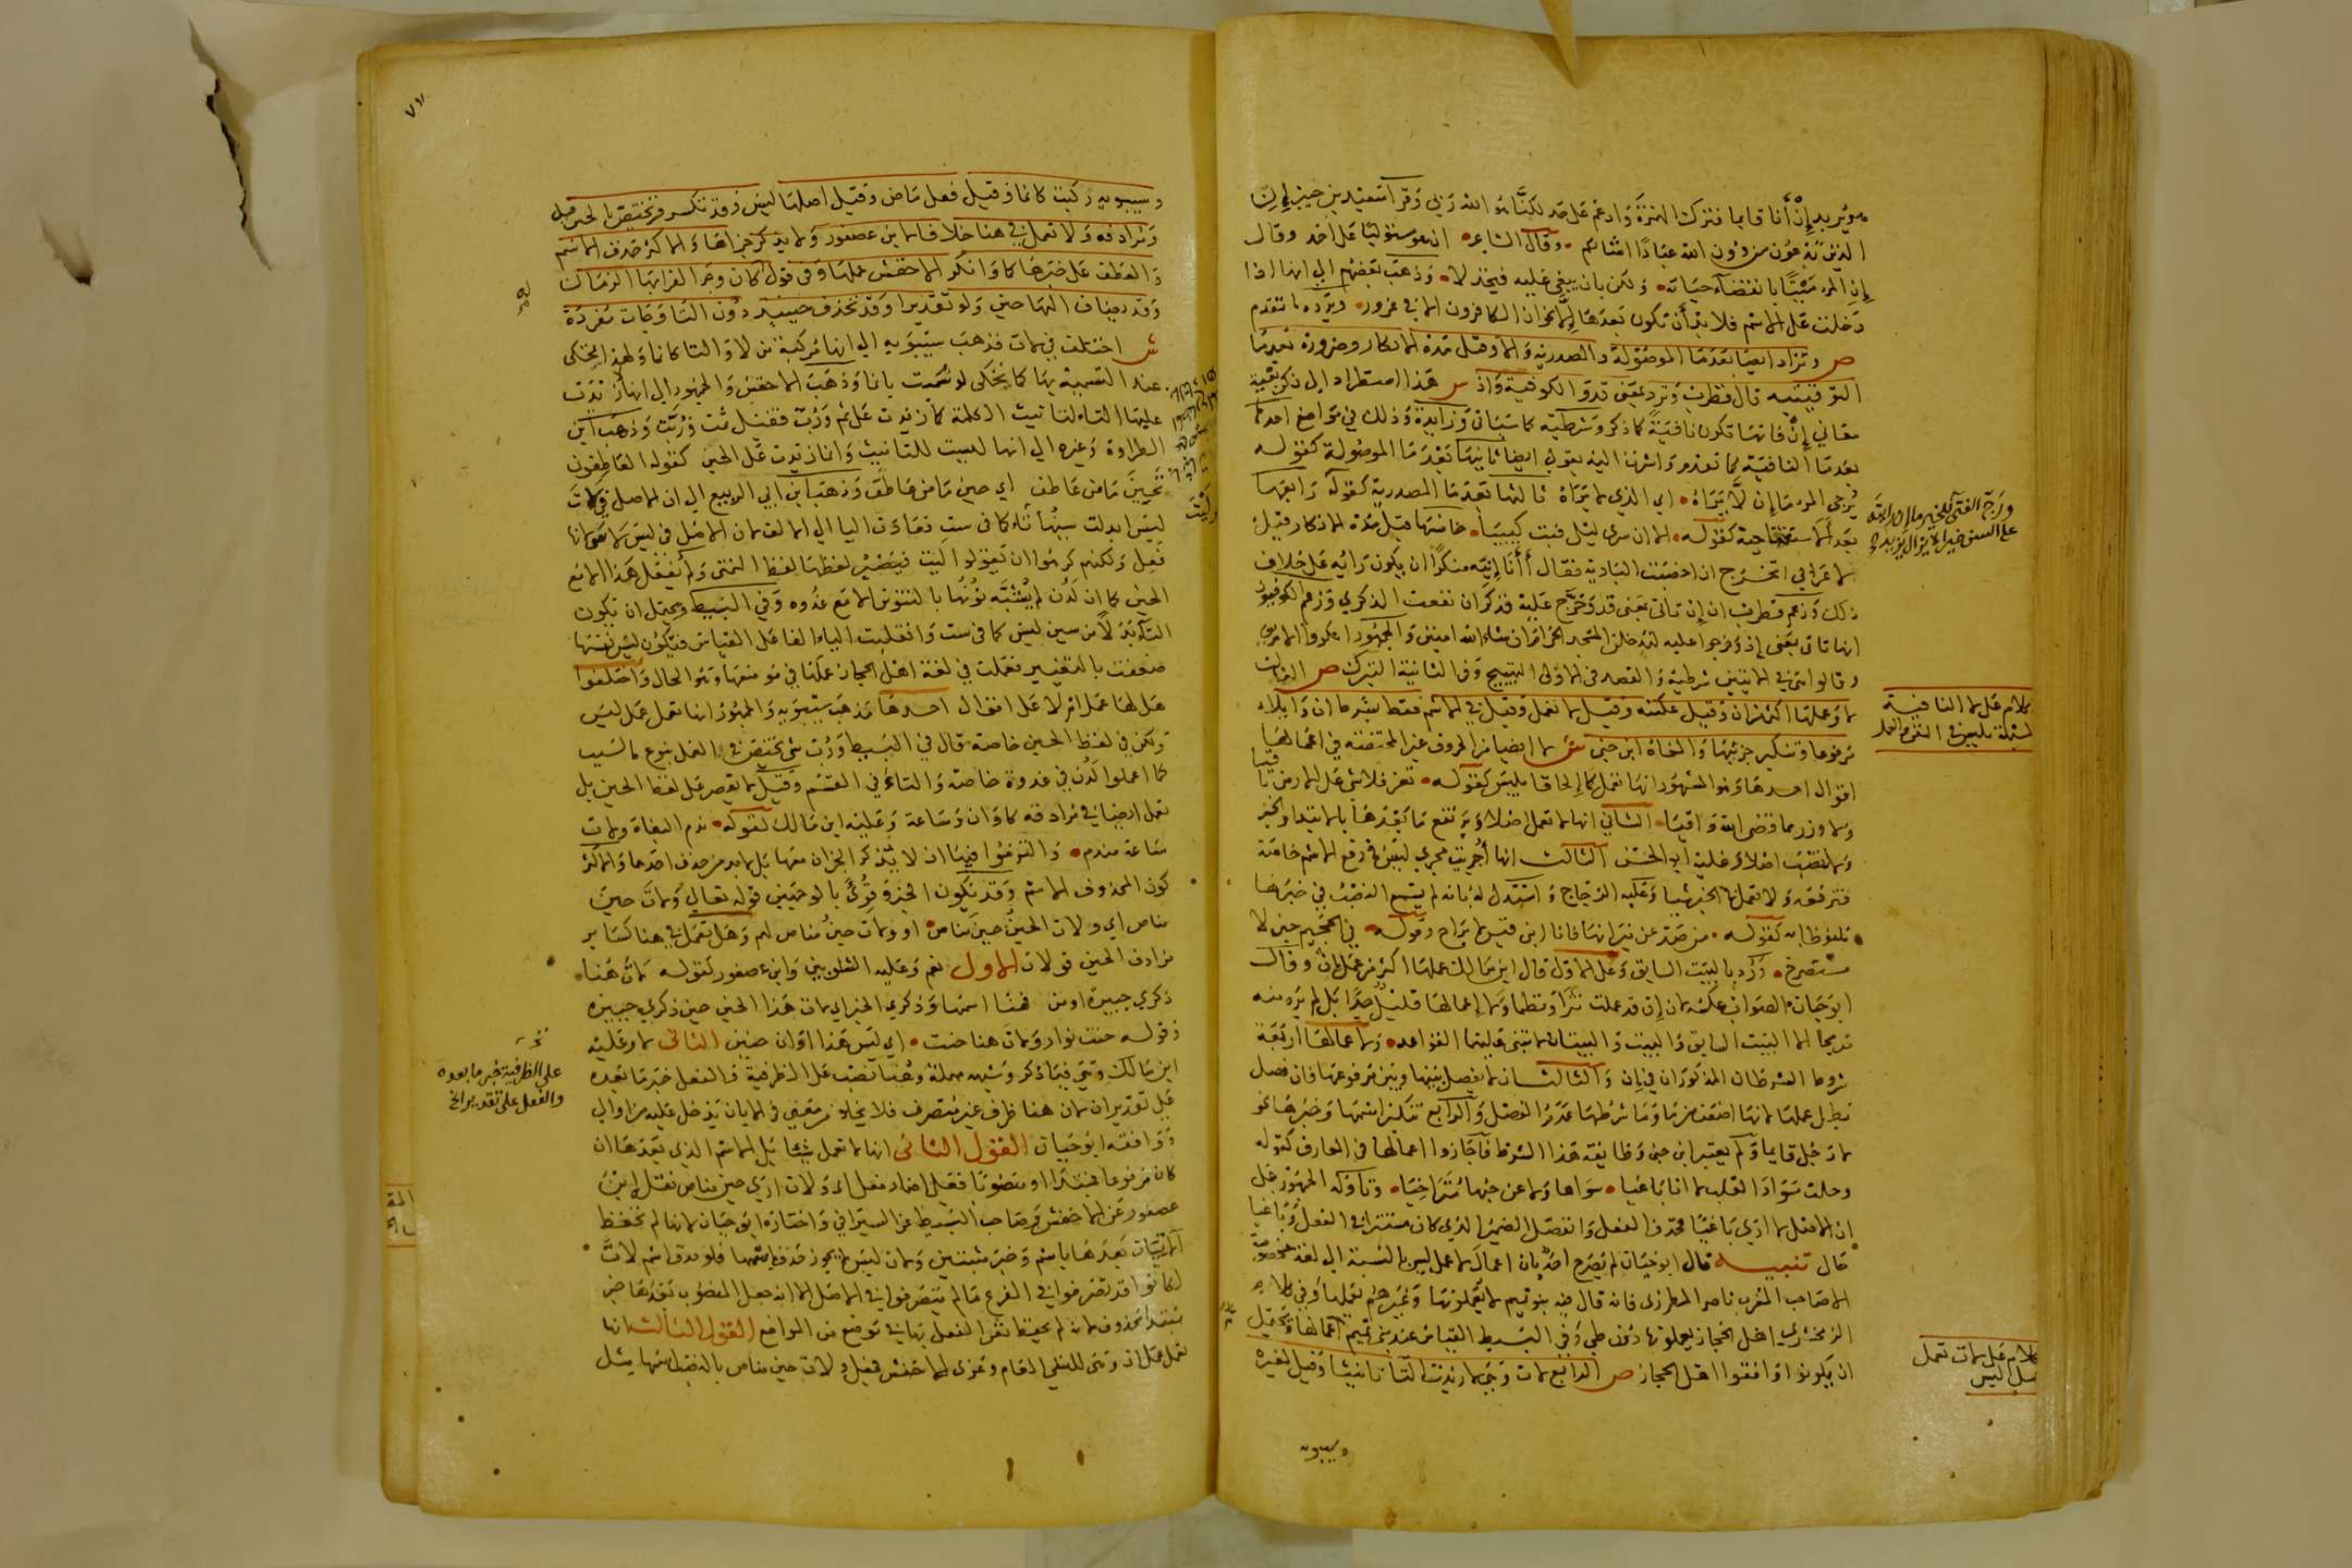 يريد إن أنا قائما فترك الهمزة وادغم على حد لكنا هو الله ربي وقرا سعيد بن جبير إن
الذين تدعون من دون الله عبادا امثالكم وقال الشاعر ان هو مستوليا على احد وقال
إن المرء ميتا بانقضاء حياته ولكن بان يبغى عليه فيخذلا وذهب بعضهم الى انها اذا
دخلت على الاسم فلا بد أن تكون بعدها إلا نحو ان الكافرون الا في غرور ويرده ما تقدم
ص وتزاد ايضا بعد ما الموصولة والمصدرية وألا وقبل مدة الانكار وضرورة بعد ما
التوقيتية قال قطرب وترد بمعنى قد والكوفية واذ ش هذا استطراد الى ذكر بقية
معاني إن فانها تكون نافية كما ذكر وشرطية كما سياتي وزايدة وذلك في مواضع احدها
بعد ما النافية كما تقدم واشرنا اليه بقولي ايضا ثانيها بعد ما الموصولة كقوله
يرجي المرء ما إن لا يراه اي الذي لا يراه ثالثها بعد ما المصدرية كقوله رابعها
بعد ألا الاستفتاحية كقوله ألا ان سرى ليلى فبت كييبا خامسها قبل مدة الانكار قيل
لاعرابي اتخرج ان اخصبت البادية فقال أأنا إنيه منكرا ان يكون رايه على خلاف
ذلك وزعم قطرب ان إن تاتى بمعنى قد وخرج عليه فذكر ان نفعت الذكري وزعم الكوفيون
انها تاتى بمعنى إذ وخرجوا عليه لتدخلن المسجد الحرام ان شاء الله امنين والجمهور انكروا الامرين
وقالوا هي في الايتين شرطية والقصد في الاولى التهييج وفي الثانية التبرك ص الثالث
لا وعملها اكثر من ان وقيل عكسه وقيل لا تعمل وقيل في الاسم فقط بشرط ان وايلاء
مرفوعها وتنكير جزئيها والنحاة ابن جني ش لا ايضا من الحروف غير المختصة في اعمالها
اقوال احدها وهو المشهور انها تعمل كما إلحاقا بليس كقوله تعز فلا شى على الارض باقيا
ولا وزر مما قضى الله واقيا الثاني انها لا تعمل اصلا ويرتفع ما بعدها بالابتدا والخبر
ولا تنصب اصلا وعليه ابو الحسن الثالث انها أجريت مجرى ليس في رفع الاسم خاصة
فترفعه ولا تعمل في الخبر شيا وعليه الزجاج واستدل له بانه لم يسمع النصب في خبرها
ملفوظا به كقوله من صد عن نيرانها فانا ابن قيس لا براح وقوله في الجحيم حين لا
مستصرخ ورد بالبيت السابق وعلى الاول قال ابن مالك عملها اكثر من عمل إن وقال
ابو حيان الصواب عكسه لان إن قد عملت نثرا ونظما ولا إعمالها قليل جدا بل لم يرد منه
صريحا الا البيت السابق والبيت والبيتان لا تبنى عليهما القواعد ولاعمالها اربعة
شروط الشرطان المذكوران في إن والثالث ان لا يفصل بينها وبين مرفوعها فان فصل
بطل عملها لانها اضعف من ما وما شرطها عدم الفصل والرابع تنكير اسمها وخبرها نحو
لا رجل قايما ولم يعتبر ابن جني وطايفة هذا الشرط فاجازوا اعمالها في المعارف كقوله
وحلت سواد القلب لا انا باغيا سواها ولا عن حبها متراخيا وتاوله الجمهور على
ان الاصل لا ارى باغيا فحذف الفعل وانفصل الضمير الذي كان مستترا في الفعل وباغيا
حال تنبيه قال ابو حيان لم يصرح احد بان اعمال لا عمل ليس بالنسبة الى لغة مخصوصة
الا صاحب المغرب ناصر المطرزي فانه قال فيه بنو تميم لا يعملونها وغيرهم يعملها وفي كلام
الزمخشري اهل الحجاز يعملونها دون طي وفي البسيط القياس عند بني تميم اعمالها ويحتمل
ان يكونوا وافقوا اهل الحجاز ص الرابع لات وهي لا زيدت التا تانيثا وقيل لغيره
وسيبويه
كلام على لا النافية
كلام على لات تعمل
عمل ليس
وسيبويه ركبت كانما وقيل فعل ماض وقيل اصلها ليس وقد تكسر وتختص بالحين قيل
ومرادفه ولا تعمل في هنا خلافا لابن عصفور ولا يذكر جزاها والاكثر حذف الاسم
والعطف على خبرها كما وانكر الاخفش عملها وفي قول كان وجر الفرا بها الزمان
وقد يضاف اليها حين ولو تقديرا وقد تحذف حينيذ دون التا وجات مفردة
ش اختلف في لات فذهب سيبويه الى انها مركبة من لا والتا كانما ولهذا تحكى
عند التسمية بها كما تحكى لو سميت بانما وذهب الاخفش والجمهور الى انها لا زيدت
عليها التاء لتانيث الكلمة كما زيدت على ثم ورب فقيل ثمت وربت وذهب ابن
الطراوة وغيره الى انها ليست للتانيث وانما زيدت على الحين كقوله العاطفون
تحين ما من عاطف اي حين ما من عاطف وذهب ابن ابي الربيع الى ان الاصل في لات
ليس ابدلت سينها تاء كما في ست فعادت اليا الى الالف لان الاصل في ليس لاس لانها
فعل ولكنهم كرهوا ان يقولوا ليت فيصير لفظها لفظ التمنى ولم يفعل هذا الا مع
الحين كما ان لدن لم يشبه نونها بالتنوين الا مع غدوه وفي البسيط ويحتمل ان تكون
التاء بدلا من سين ليس كما في ست وانقلبت الياء الفا على القياس فتكون ليس نفسها
ضعفت بالتغيير فعملت في لغة اهل الحجاز عملها في موضعها وهو الحال واختلفوا
هل لها عمل ام لا على اقوال احدها مذهب سيبويه والجمهور انها تعمل عمل ليس
ولكن في لفظ الحين خاصة قال في البسيط ورب شى يختص في العمل بنوع ما لسبب
كما اعملوا لدن في غدوة خاصة والتاء في القسم وقيل لا يقصر على لفظ الحين بل
تعمل ايضا في مرادفه كاوان وساعة وعليه ابن مالك كقوله ندم البغاة ولات
ساعة مندم والتزموا فيها ان لا يذكر الجزان معها بل لابد من حذف احدهما والاكثر
كون المحذوف الاسم وقد يكون الخبر وقرئ بالوجهين قوله تعالى ولات حين
مناص اي ولات الحين حين مناص او ولات حين مناص لهم وهل تعمل في هنا كساير
مرادف الحين قولان الاول نعم وعليه الشلوبين وابن عصفور كقوله لات هنا
ذكرى جبيرة او من فهنا اسمها وذكرى الخبر اي لات هذا الحين حين ذكرى جبيرة
وقوله حنت نوار ولات هنا حنت اي ليس هذا اوان حنين الثانى لا وعليه
ابن مالك وهي فيما ذكر وشبهه مهملة وهنا نصب على الظرفية والفعل خبر ما بعده
على تقدير ان لان هنا ظرف غير متصرف فلا يخلو من معنى في الا بان يدخل عليه من او الى
ووافقه ابو حيان القول الثانى انها لا تعمل شيا بل الاسم الذي بعدها ان
كان مرفوعا فمبتدا او منصوبا فعلى اضمار فعل اي ولات ارى حين مناص نقله ابن
عصفور عن الاخفش وصاحب البسيط عن السيرافي واختاره ابو حيان لانها لم يحفظ
الاتيان بعدها باسم وخبر مثبتين ولان ليس لا يجوز حذف اسمها فلو حذف اسم لات
لكانوا قد تصرفوا في الفرع ما لم يتصرفوا في الاصل الا انه جعل المنصوب بعدها خبر
مبتدا محذوف لانه لم يحفظ نفى الفعل بها في موضع من المواضع القول الثالث انها
تعمل عمل ان وهي للنفي العام وعزى للاخفش فقيل ولات حين مناص بالنصب اسمها مثل
على الظرفية خبر ما بعده
والفعل على تقدير الخ